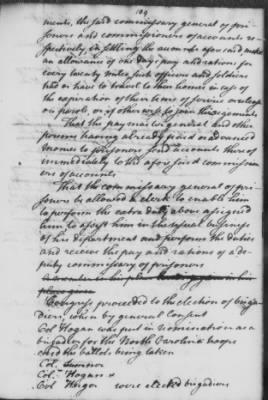 109
ments, the said commissary general of pri-
soners and commissioners of accounts re-
spectively, in settling the accounts aforesaid make
an allowance of one days pay and rations for
every twenty miles such officers and soldiers
had or have to travel to their homes in case of
the expiration of their terms of service or release
on parole or
That the pay master general and other
persons having already paid or advanced
monies to prisoners send accounts thereof
immediately to the aforesaid commission
ers of accounts
That the commissary general of pri-
soners be allowed a clerk to enable him
to perform the extra duty above assigned
him to assist him in the usual business
of his department and perform the duties
and receive the pay and rations of a de-
puty commissary of prisoners
place given
Congress proceeded to the election of briga-
diers, when by general consent
Col Hogan was put in nomination as a
brigadier for the North Carolina troops
and the ballots being taken
Col. Sumner
Col. Hogan &
Col were elected brigadiers